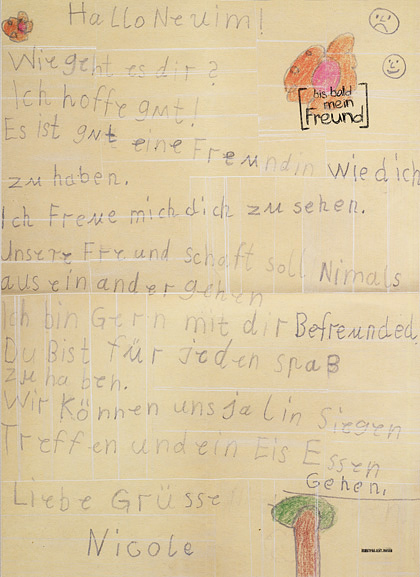 Hallo Neuim!
Wie geht es dir?
Ich hoffe gut!
bis bald
mein
Freund
Es ist gut eine Freundin wie dich
zu haben.
Ich Freue mich dich zu sehen.
Unsere Freundschaft soll Nimals
auseinander gehen
Ich bin Gern mit dir Befreunded,
Du Bist für jeden spaß
zu haben.
Wir Können uns ja lin Siegen
Treffen und ein Eis Essen
Gehen.
Liebe Grüsse
Nicole